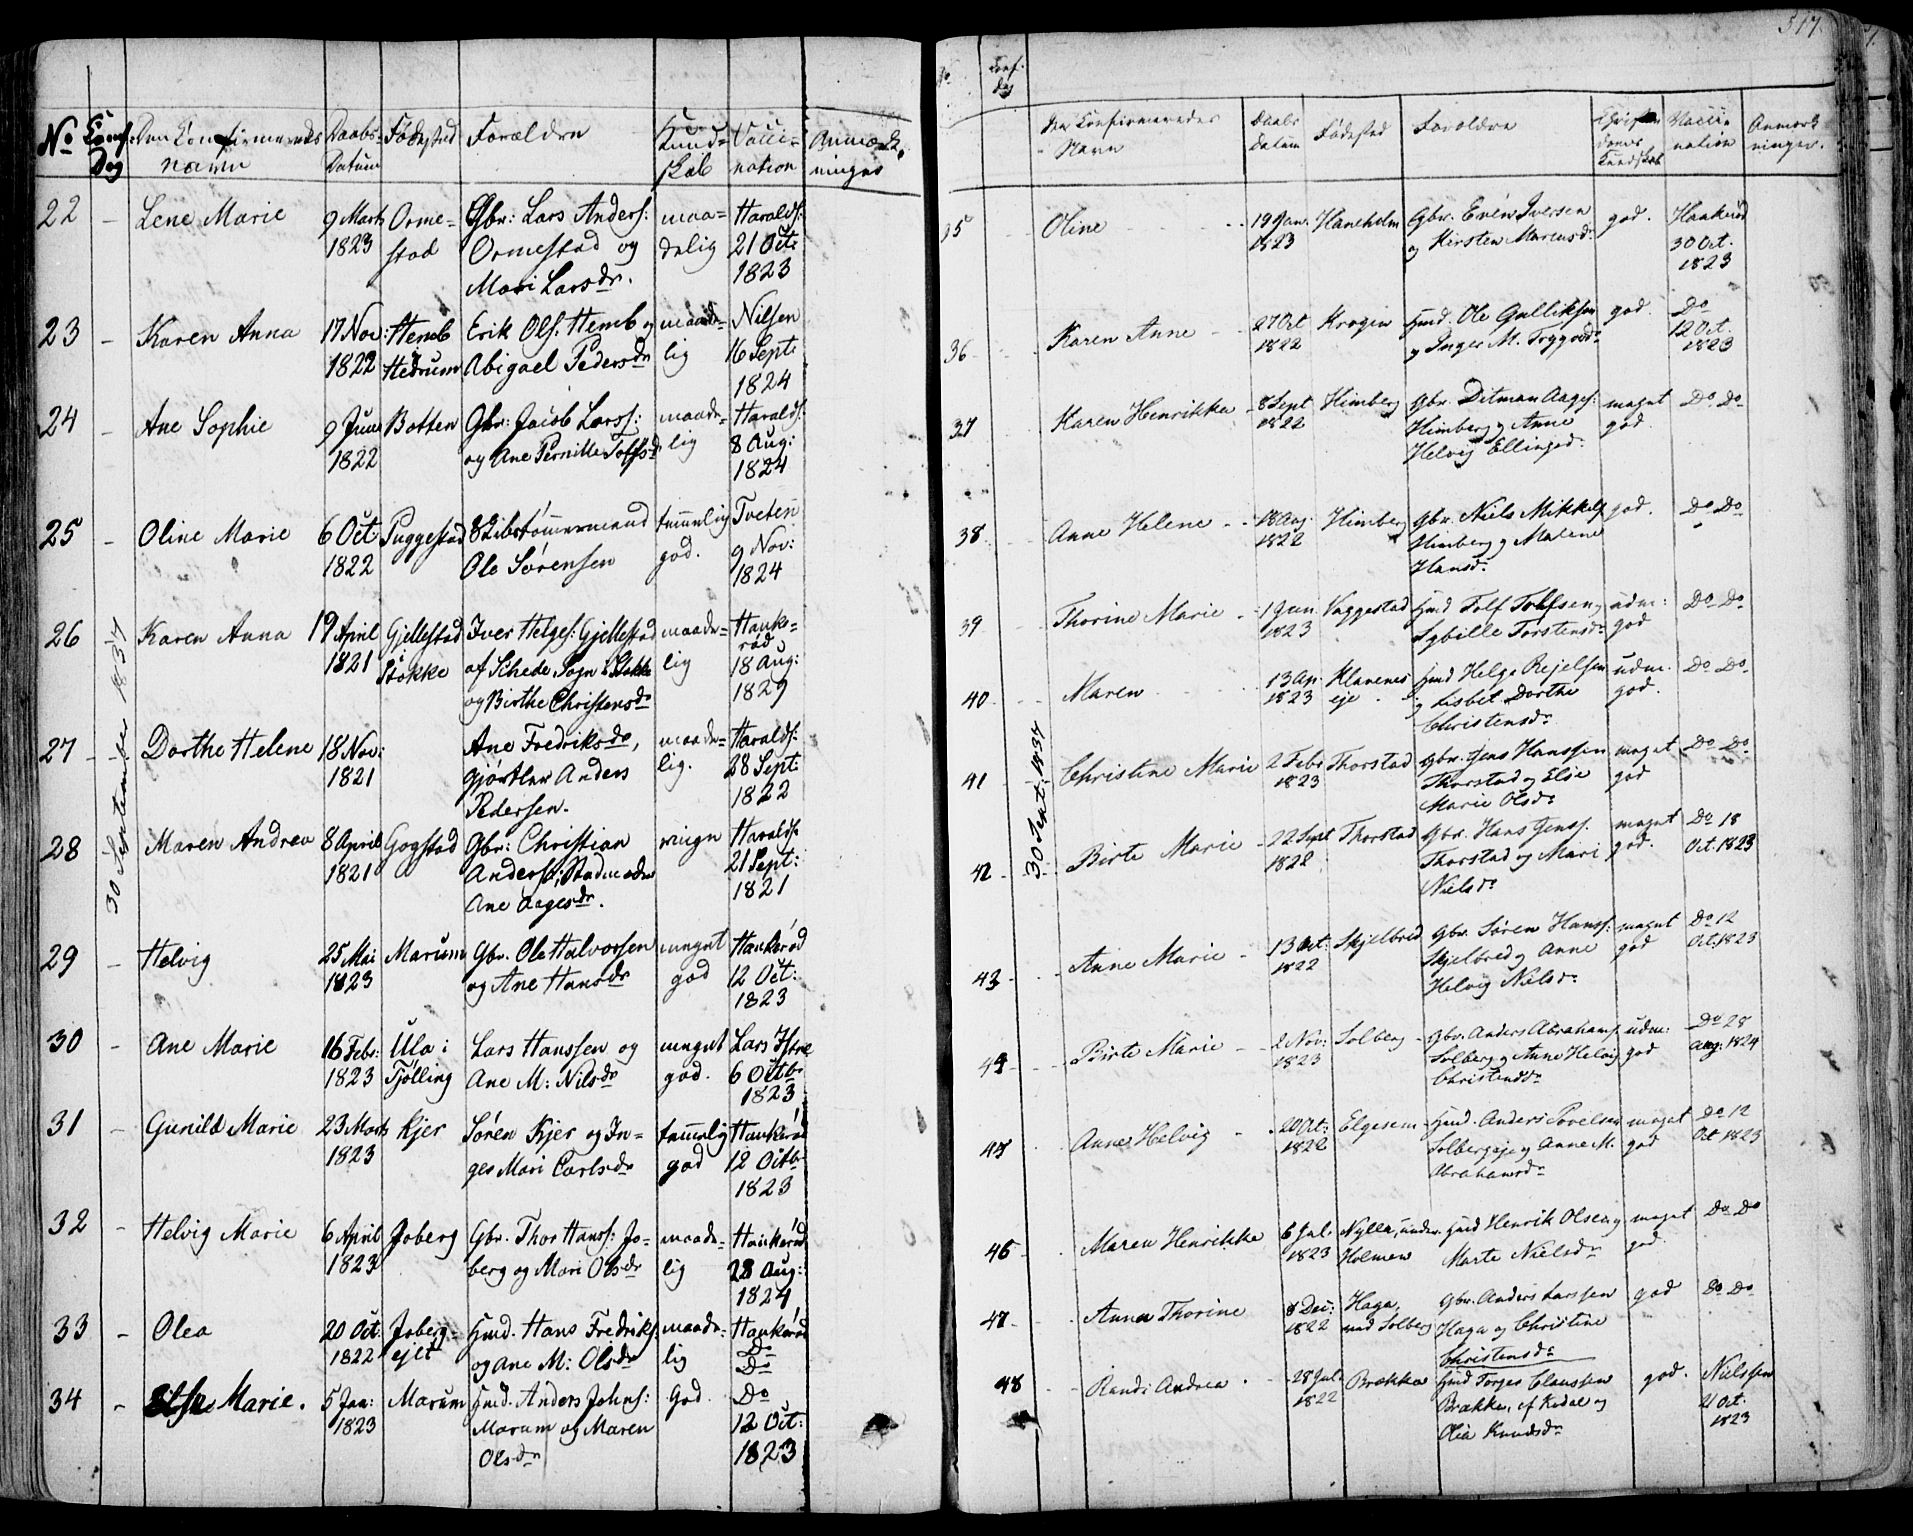 517.
No Conf: Den Confirmeredes Daabs- Fødested Forældre Kund- Vacci- Anmærk-
Dag navn Datum skab nation ninger
30 September 1837
22 – Lene Marie 9 Marts Orme- Gbr: Lars Anders: maa- Haralds:
1823 stad Ormestad og delig 21 Oct:
Mari Larsdr. 1823
23 – Karen Anna 17 Nov: Hemb Erik Ols: Hemb og maade- Nilsen
1822 Hedrum Abigael Pedersdr lig 16 Sept:
1824
24 – Ane Sophie 9 Juni Botten Gbr: Jacob Larss: maade- Haralds:
1822 og Ane Pernille Tolfsdr lig 8 Aug:
1824
25 – Oline Marie 6 Oct Puggestad Skibstømmermand temmelig Tveten
1822 Ole Sørensen god. 9 Nov:
1824
26 Karen Anna 19 April Gjellestad Iver Helges: Gjellestad maade- Hauke-
1821 Stokke af Schede Sogn i Stokke lig rød
og Birthe Christensdr 18 Aug:
1829
27 – Dorthe Helene 18 Nov: Ane Fredriksdr, maade- Haralds:
1821 Gjørtler Anders lig. 28 Sept:
Pedersen. 1822
28 Maren Andrea 8 April Gogstad Gbr: Christian ringe Haralds
1821 Anders: 21 Sept:
Ane Aagesdr. 1821
29 – Helvig 25 Mai Marum Gbr. Ole Halvorsen meget Haukerød
1823 og Ane Hansdr god 12 Oct:
1823
30 – Ane Marie 16 Febr: Ula i Lars Hanssen og meget Lars Istre
1823 Tjølling Ane M: Nilsdr god. 6 Octbr
1823
31 – Gunild Marie 23 Marts Kjer Søren Kjer og In- temmelig Haukerød
1823 ger Mari Carlsdr god 12 Octbr
1823
32 – Helvig Marie 6 April Joberg Gbr. Thor Hanss: Jo- maade- Haukerød
1823 berg og Mari Olsdr lig 28 Aug:
1824
33 – Olea 20 Oct: Joberg- Hmd. Hans Fredriks: maade- Haukerød
1822 ejet og Ane M: Olsdr lig Do
Do
34 – Else Marie. 5 Jan: Marum Hmd. Anders Johns: God. Do
1823 Marum og Maren 12 Oct:
Olsdr 1823
No Conf: Den Confirmeredes Daabs Fødested Forældre Christen- Vacci- Anmærk-
Dag Navn Datum doms nation ninger.
Kundskab
30 Sept. 1837
35 Oline 19 Jan. Haneholm Gbr. Even Iversen god. Haukerød
1823 og Kirsten Marcusdr 30 Oct.
1823
36 Karen Anne 27 Oct Krogen Hmd. Ole Gulliksen god. Do
1822 og Inger M. Trygvedr 12 Oct.
1823
37 Karen Henrikke 8 Sept Himberg Gbr. Ditman Aages: meget Do Do
1822 Himberg og Anne god.
Helvig Ellingsd:
38 Anne Helene 18 Aug. Himberg Gbr. Niels Mikkels god. Do Do
1822 Himberg og Malene
Hansdr
39 Thorine Marie 1 Jan. Vaggestad Hmd Tolf Tolfsen og udm: Do Do
1823 Sybille Torstensdr god
40 Maren 13 Ap. Klavenes Hmd Helge Rejelsen udm. Do Do
1823 eje og Lisbet Dorthe god.
Christensdr
41 Christine Marie 2 Febr Thorstad Gbr. Jens Hanssen meget Do Do
1823 Thorstad og Else god
Marie Olsdr
42 Birte Marie 22 Sept Thorstad Gbr. Hans Jenss. meget Do 18
1822 Thorstad og Mari god. Oct. 1823
Nielsdr
43 Anne Marie 13 Oct: Skjelbred Gbr. Søren Hanss: meget Do 12
1822 Skjelbred og Anne god Oct. 1823
Helvig Nielsdr
44 Birte Marie 2 Nov: Solberg Gbr. Anders Abrahams. udm: Do 28
1823 Solberg og Anne Helvig god Aug: 1824
Christensdr
45 Anne Helvig 20 Oct: Elgesem Hmd. Anders Povelsen meget Do 12
1822 Solbergeje og Anne M. god Oct 1823
Abrahamsdr
46 Maren Henrikke 6 Jul. Nylla, under Hmd Henrik Olsen og meget Do Do
1823 Holmen Marte Nielsdr god
47 Anna Thorine 8 Dec: Haga, Gbr. Anders Larssen god Do Do
1822 ved Solberg Haga og Christine
Christensdr
48 Randi Andrea 28 Jul. Brekke Hmd Torger Claussen god. Nielssen
1822 Brekke, af Kodal og 21 Oct.
Olia Knudsdr 1823